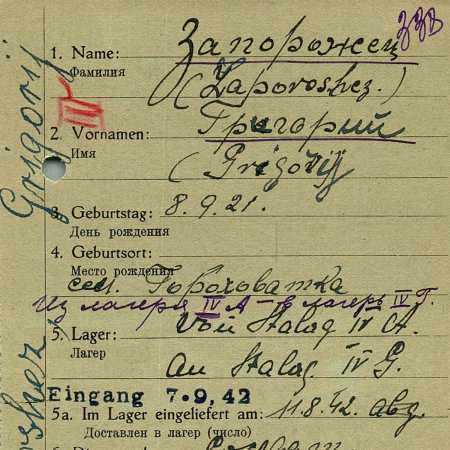 333
1. Name: Запорожец
Фамилия (Zaporoshez.)
III
2. Vornamen: Григорий
Имя (Grigorij
3. Geburtstag: 8.9.21.
День рождения
4. Geburtsort:
Место рождения
сел. Гороховатка
из лагеря IV А – в лагерь IV Г.
5. Lager: Von Stalag IV A.
Лагерь An Stalag IV G.
Eingang 7.9.42
5a. Im Lager eingeliefert am: 11.8.42. abg.
Доставлен в лагерь (число)
Grigorij